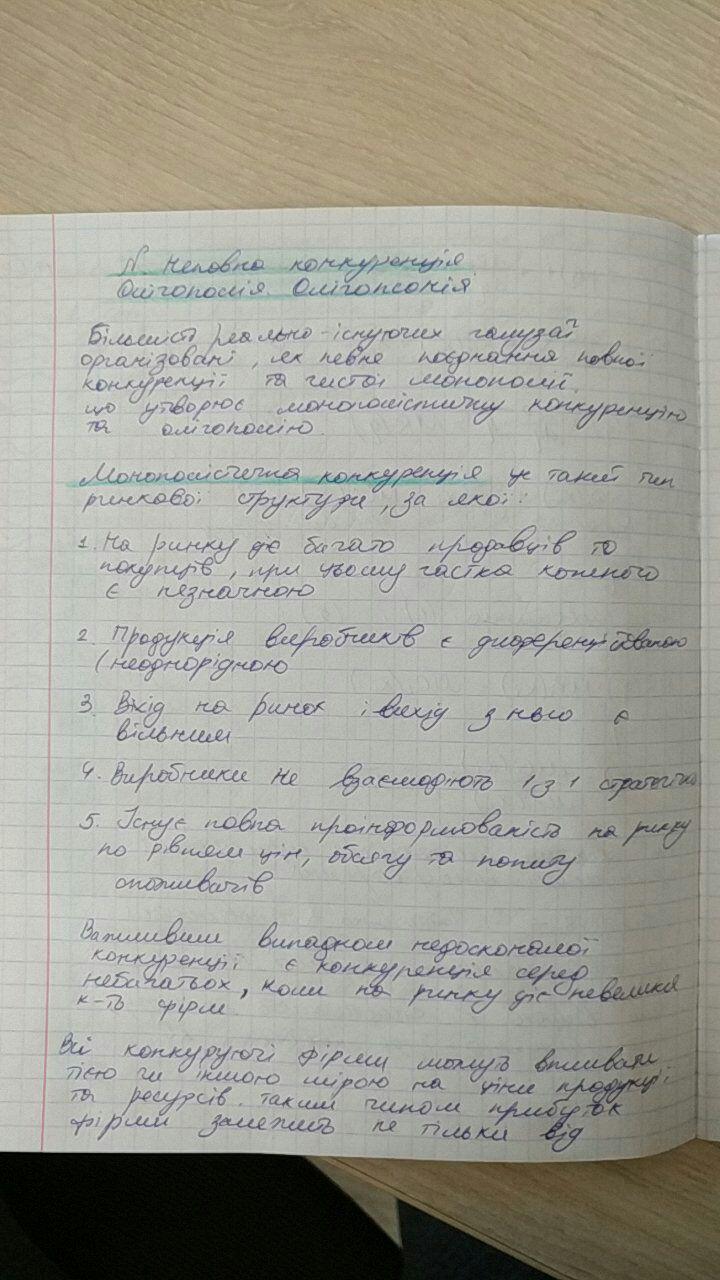 N. Неповна конкуренція
Олігополія. Олігопсонія
Більшість реально-існуючих галузей
організовані, як певне поєднання повної
конкуренції та чистої монополії,
що утворює монополістичну конкуренцію
та олігополію.
Монополістична конкуренція це такий тип
ринкової структури, за якої:
1. На ринку діє багато продавців та
покупців, при цьому частка кожного
є незначною
2. Продукція виробників є диференційованою
(неоднорідною
3. Вхід на ринок і вихід з нього є
вільним
4. Виробники не взаємодіють 1 з 1 стратегічно
5. Існує повна проінформованість на ринку
по рівням цін, обсягу та попиту
споживачів
Важливим випадком недосконалої
конкуренції є конкуренція серед
небагатьох, коли на ринку діє невелика
к-ть фірм
Всі конкуруючі фірми можуть впливати
тією чи іншою мірою на ціни продукції
та ресурсів. таким чином прибуток
фірми залежить не тільки від